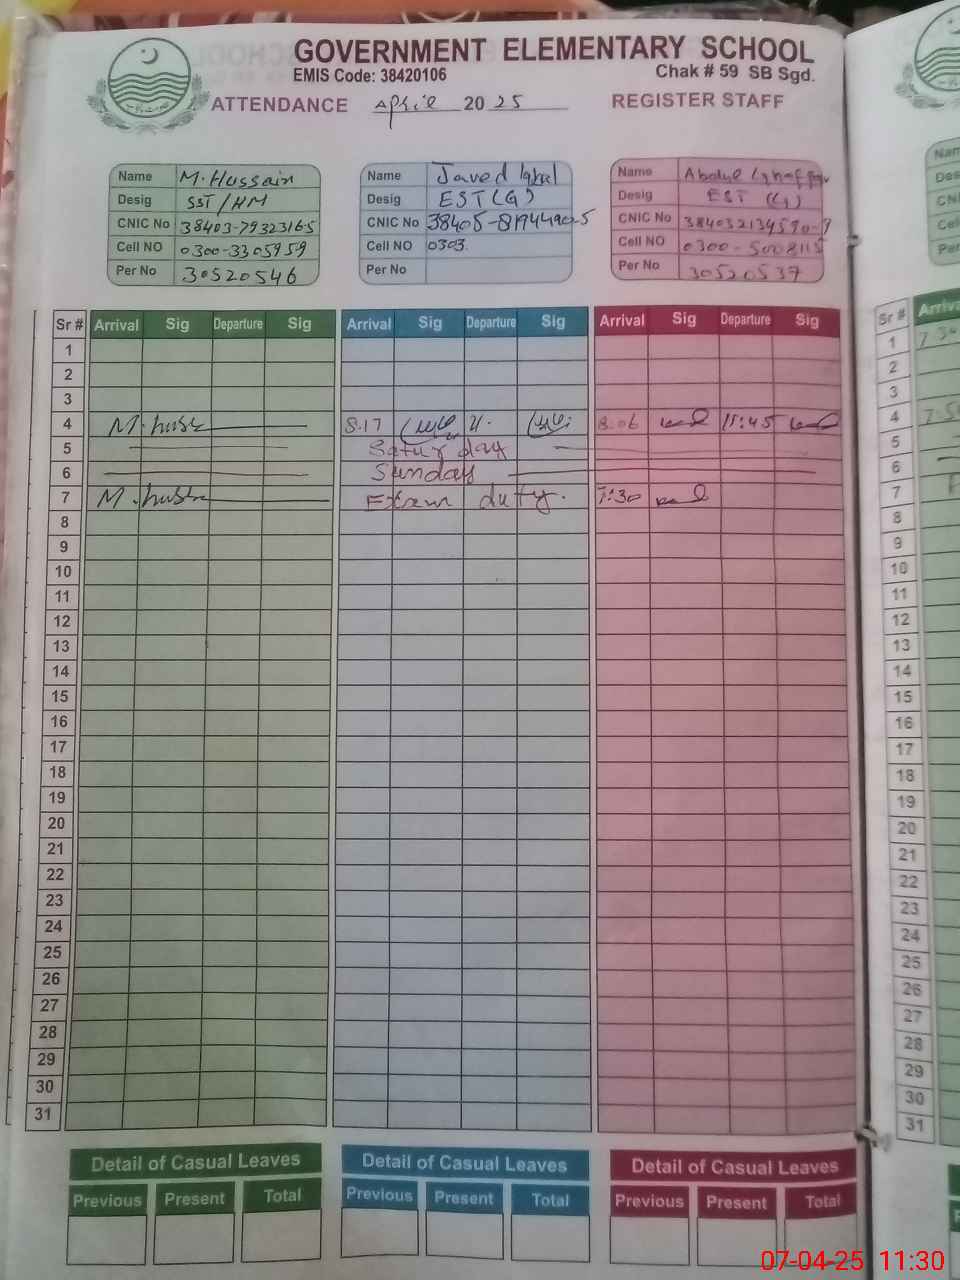 GOVERNMENT ELEMENTARY SCHOOL
EMIS Code: 38420106
Chak # 59 SB Sgd.
ATTENDANCE April 2025 REGISTER STAFF
Name M. Hussain
Desig SST/HM
CNIC No 38403-7932316-5
Cell NO 0300-3305959
Per No 30520546
Name Javed Iqbal
Desig EST(G)
CNIC No 38405-8194490-5
Cell NO 0303
Per No
Name Abdul
Desig EST (G)
CNIC No
Cell NO 0300-5008115
Per No 30520537
Sr # Arrival Sig Departure Sig Arrival Sig Departure Sig Arrival Sig Departure Sig
1
2
3
4 8.17 8:06 11:45
5 Saturday
6 Sunday
7 Exam duty. 7:30
8
9
10
11
12
13
14
15
16
17
18
19
20
21
22
23
24
25
26
27
28
29
30
31
Detail of Casual Leaves Detail of Casual Leaves Detail of Casual Leaves
Previous Present Total Previous Present Total Previous Present Total
Sr #
1
2
3
4
5
6
7
8
9
10
11
12
13
14
15
16
17
18
19
20
21
22
23
24
25
26
27
28
29
30
31
07-04-25 11:30